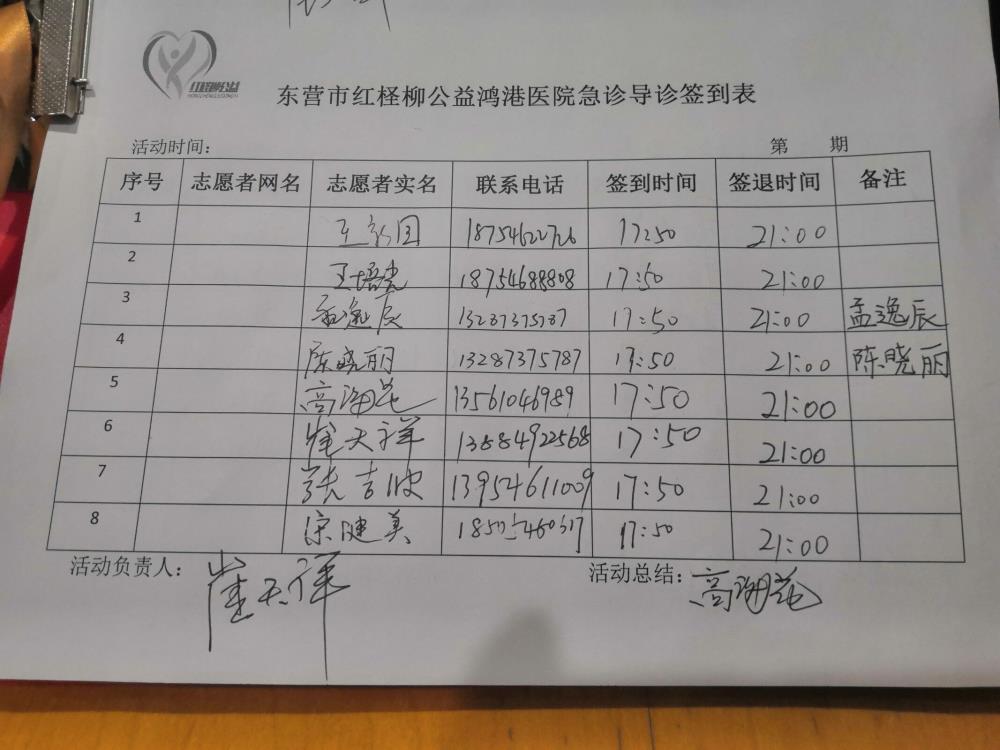 东营市红柽柳公益鸿港医院急诊导诊签到表
活动时间： 第 期
序号 志愿者网名 志愿者实名 联系电话 签到时间 签退时间 备注
1 17:50 21:00
2 王培光 18754688808 17:50 21:00
3 孟逸辰 13287375787 17:50 21:00 孟逸辰
4 陈晓丽 13287375787 17:50 21:00 陈晓丽
5 高海花 13561046989 17:50 21:00
6 崔天祥 13884922568 17:50 21:00
7 张吉波 13954611009 17:50 21:00
8 宋健美 17:50 21:00
活动负责人： 崔天祥 活动总结： 高海花